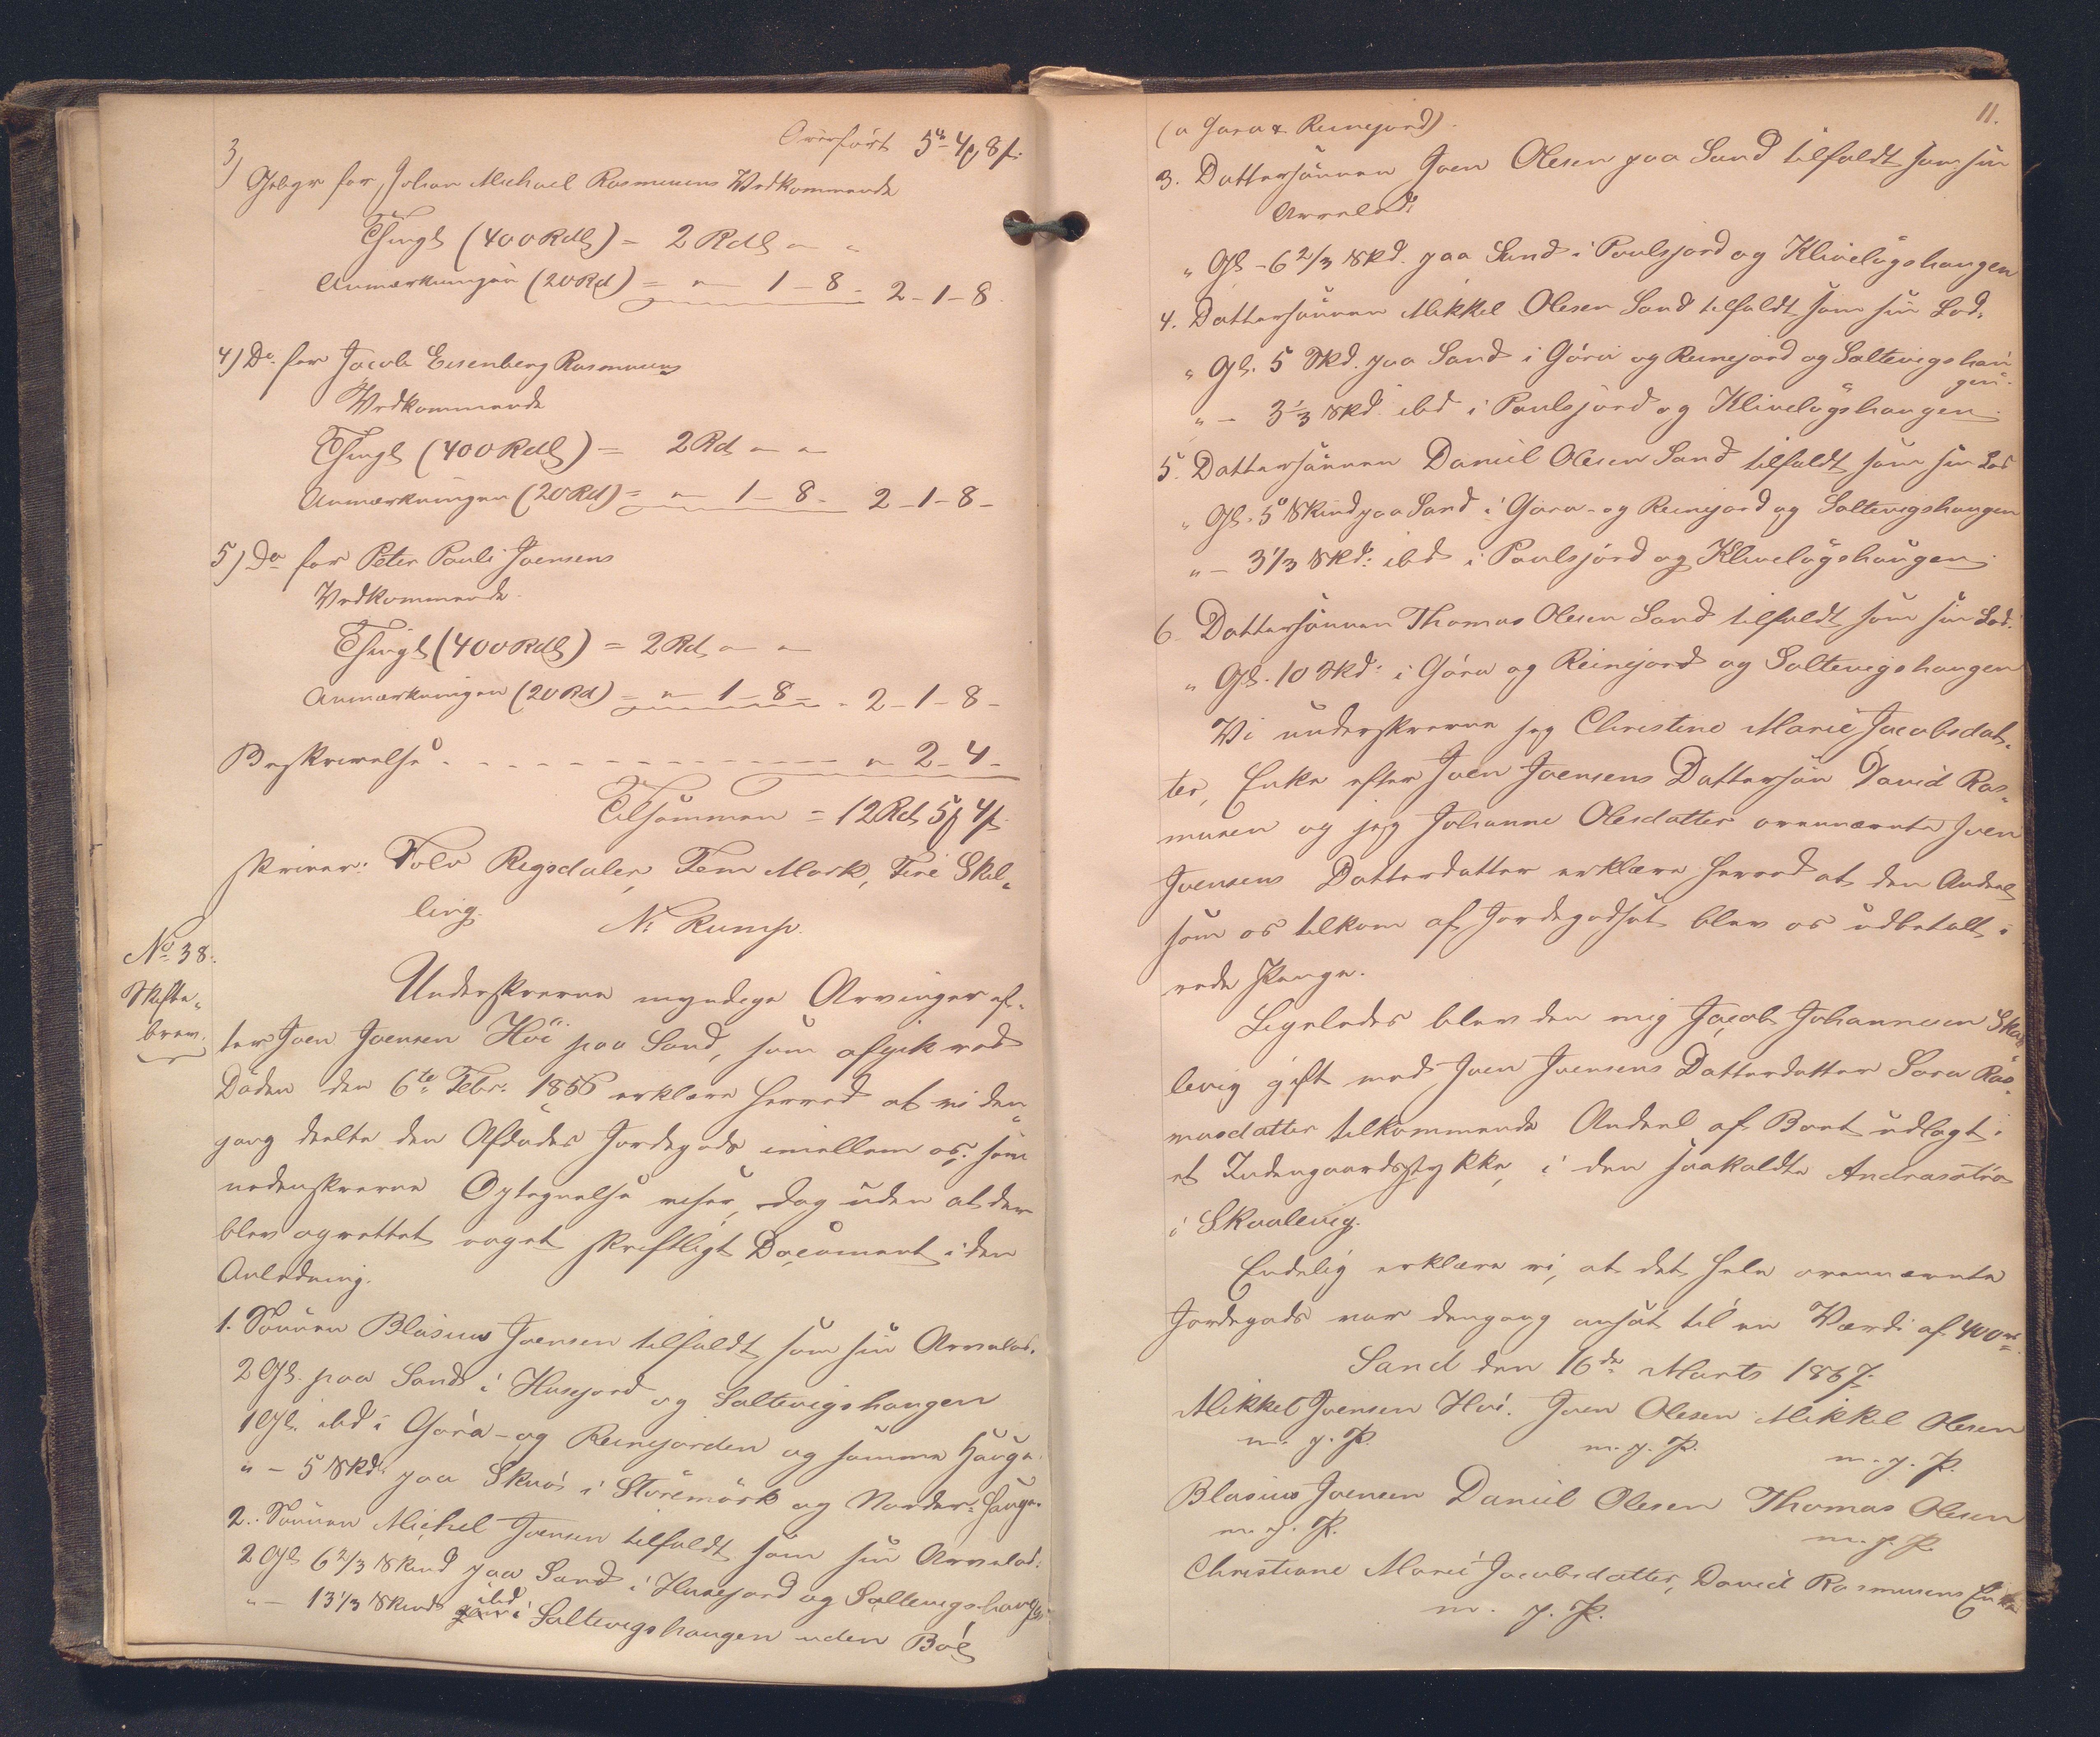 Overført 5 rd 4 ß 8 ß:
3)
Gebyr for Johan Michael Rasmussens Vedkommende
Thingl (400 Rdl) = 2 Rdl " "
Anmærkningen (20 Rd) = " 1 - 8 - 2 - 1 - 8.
4) Do. for Jacob Eisenberg Rasmussens
Vedkommende
Thingl (400 Rdl) = 2 Rd " "
Anmærkningen (20 Rd) = " 1 - 8 - 2 - 1 - 8 -
5) Do for Peter Pauli Joensens
Vedkommende
Thingl (400 Rdl) = 2 Rd " "
Anmærkningen (20 Rd) = " 1 - 8 - 2 - 1 - 8 -
Beskrivelse - - - - " 2 - 4 -
Tilsammen = 12 Rd 5 ß 4 ß
skriver: Tolv Rigsdaler, Fem Mark, Fire Skil-
ling. N. Rump.
No 38.
Skifte-
brev.
Underskrevne myndige Arvinger ef-
ter Joen Joensen Höi paa Sand, som afgik ved
Döden den 6te Febr: 1856 erklære herved at vi den-
gang deelte den Afdödes Jordegods imellem os, som
nedenskrevne Optegnelse viser, dog uden at der
blev oprettet noget skriftligt Document i den
Anledning.
1. Sönnen Blasius Joensen tilfaldt som sin Arvelod.
2 Gl. paa Sand i Husejord og Saltevigshaugen
1 Gl. ibd i Góra- og Reinejorden og samme Hauge.
" - 5 Skd. paa Skuö i Störemörk og Norder-Hauge.
2. Sönnen Michel Joensen tilfaldt som sin Arvelod:
2 Gl 6 2/3 Skind paa Sand i Husejord og Saltevigshaugen
" - 13 1/3 Skind ibd i Saltevigshaugen uden Böl
11.
(a Gora & Reinejord).
3. Dattersönnen Joen Olesen paa Sand tilfaldt som sin
Arvelod:
" Gl - 6 2/3 Skd. paa Sand i Poulsjord og Klivelögshaugen
4. Dattersönnen Mikkel Olesen Sand tilfaldt som sin Lod.
" Gl. 5 Skd. paa Sand i Góra og Reinejord og Saltevigshau-
gen.
" - 3 1/3 Skd ibd i Poulsjord og Klivelögshaugen.
5. Dattersönnen Daniel Olesen Sand tilfaldt som sin Lod
" Gl. 5 Skind paa Sand i Gora- og Reinejord og Saltevigshaugen
" - 3 1/3 Skd: ibd i Poulsjörd og Klivelögshaugen.
6. Dattersönnen Thomas Olesen Sand tilfaldt som sin Lod:
" Gl. 10 Skd: i Góra og Reinejord og Saltevigshaugen
Vi underskrevne jeg Christine Marie Jacobsdat-
ter, Enke efter Joen Joensens Dattersön David Ras-
musen og jeg Johanne Olesdatter ovennævnte Joen
Joensens Datterdatter erklære herved at den Andeel
som os tilkom af Jordegodset blev os udbetalt i
rede Penge.
Ligeledes blev den mig Jacob Johannesen Skaa-
levig gift med Joen Joensens Datterdatter Sara Ras-
musdatter tilkommende Andeel af Boet udlagt i
et Indengaardsstykke, i den saakaldte
i Skaalevig.
Endelig erklære vi, at det hele ovennævnte
Jordegods var dengang ansat til en Værdi af 400 rd
Sand den 16de Marts 1867.
Mikkel Joensen Höi. Joen Olesen Mikkel Olesen
m. p. P. m. p. P. m. p. P.
Blasius Joensen Daniel Olesen Thomas Olesen
m. p. P. m. p. P.
Christiane Marie Jacobsdatter, David Rasmusens Enke
m. p. P.